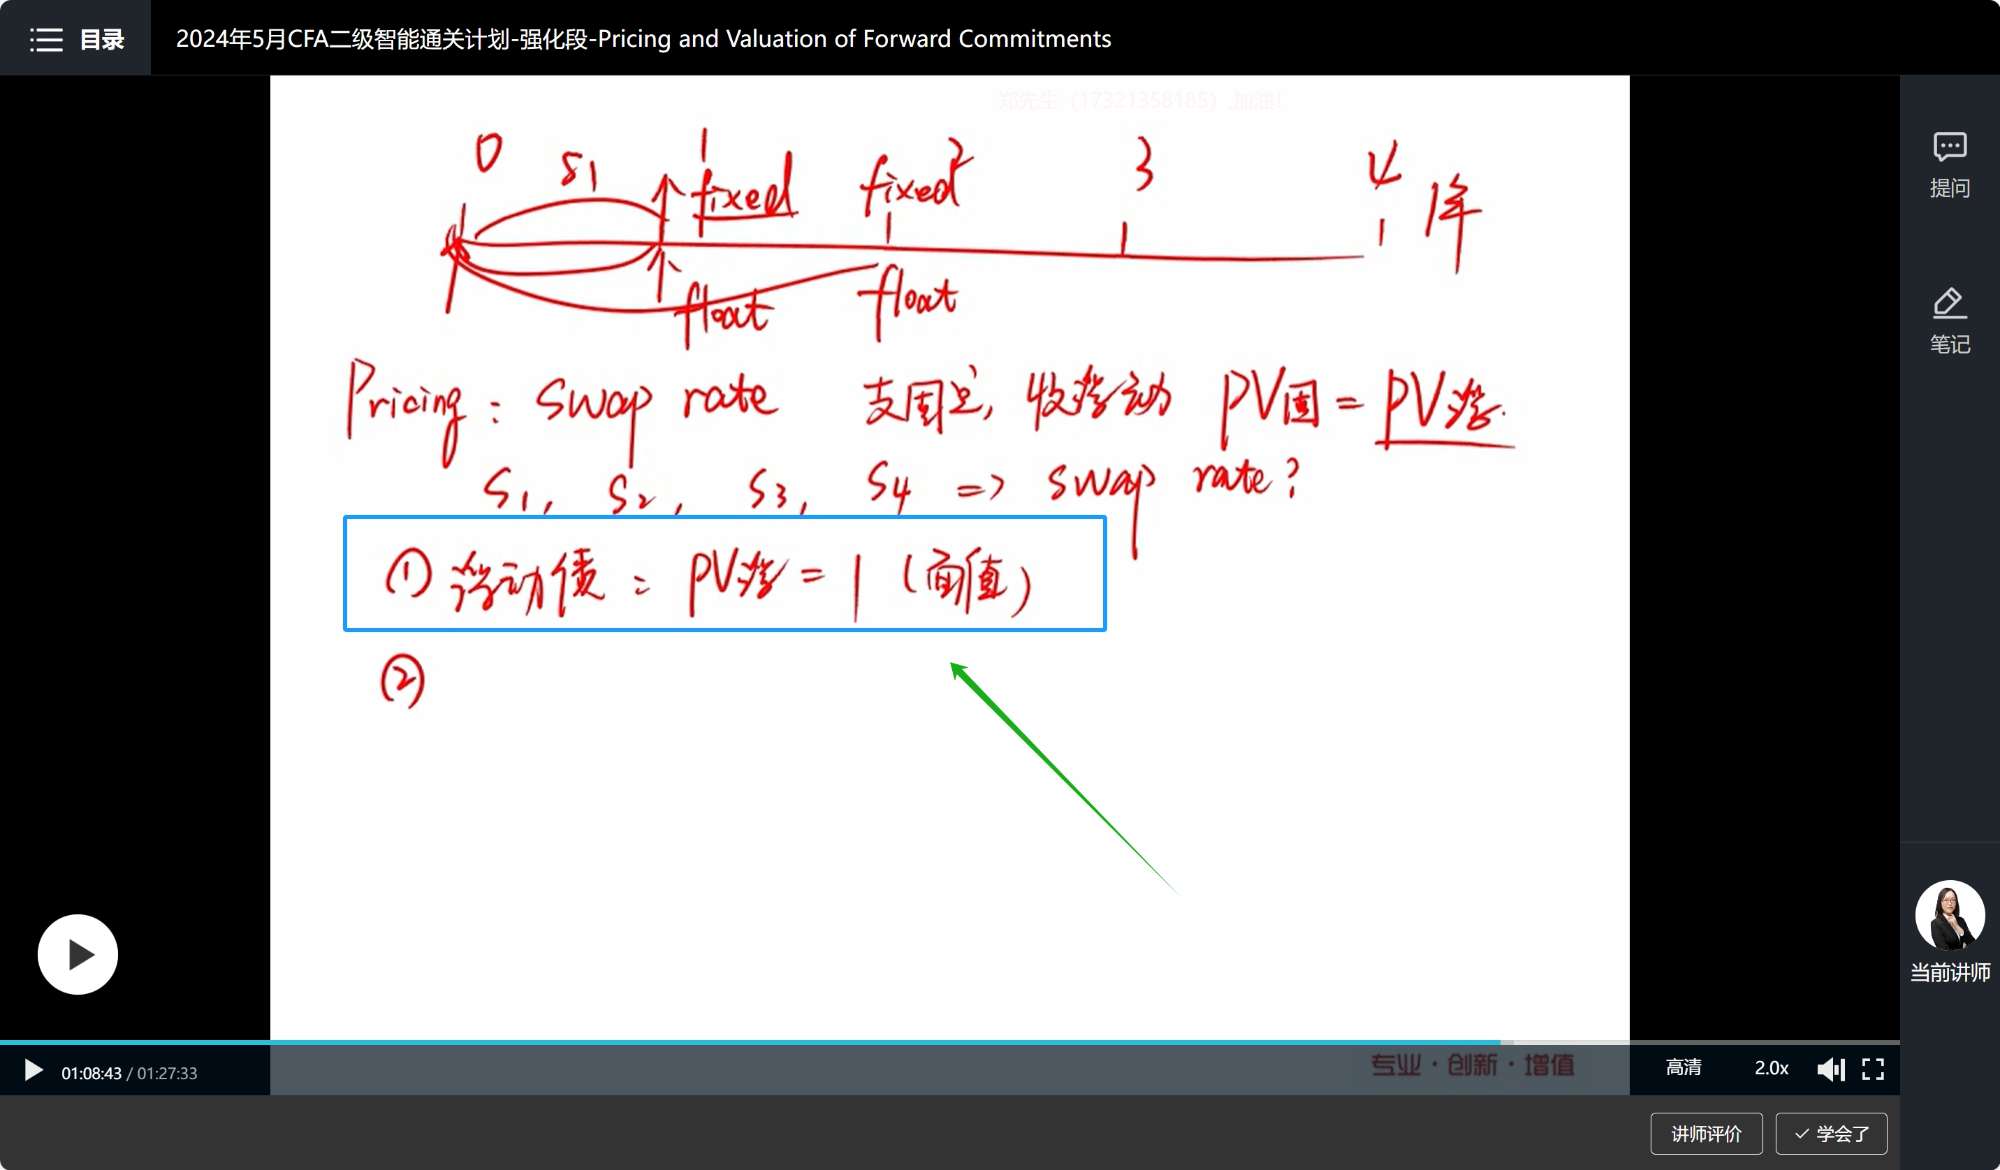 目录 2024年5月CFA二级智能通关计划-强化段-Pricing and Valuation of Forward Commitments
郑先生(17321358185),加油!
提问
笔记
0 S1 1 2 3 4 年
fixed fixed
float float
Pricing: swap rate 支固定,收浮动 PV固=PV浮.
S1, S2, S3, S4 => swap rate?
① 浮动债: PV浮=1(面值)
②
当前讲师
专业·创新·增值
01:08:43 / 01:27:33 高清 2.0x
讲师评价 学会了